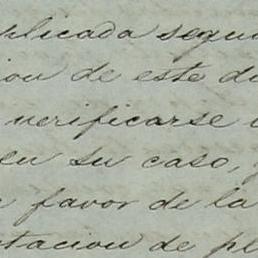 plicada segu
ion de este d
verificarse
en su caso,
favor de la
tacion de pl